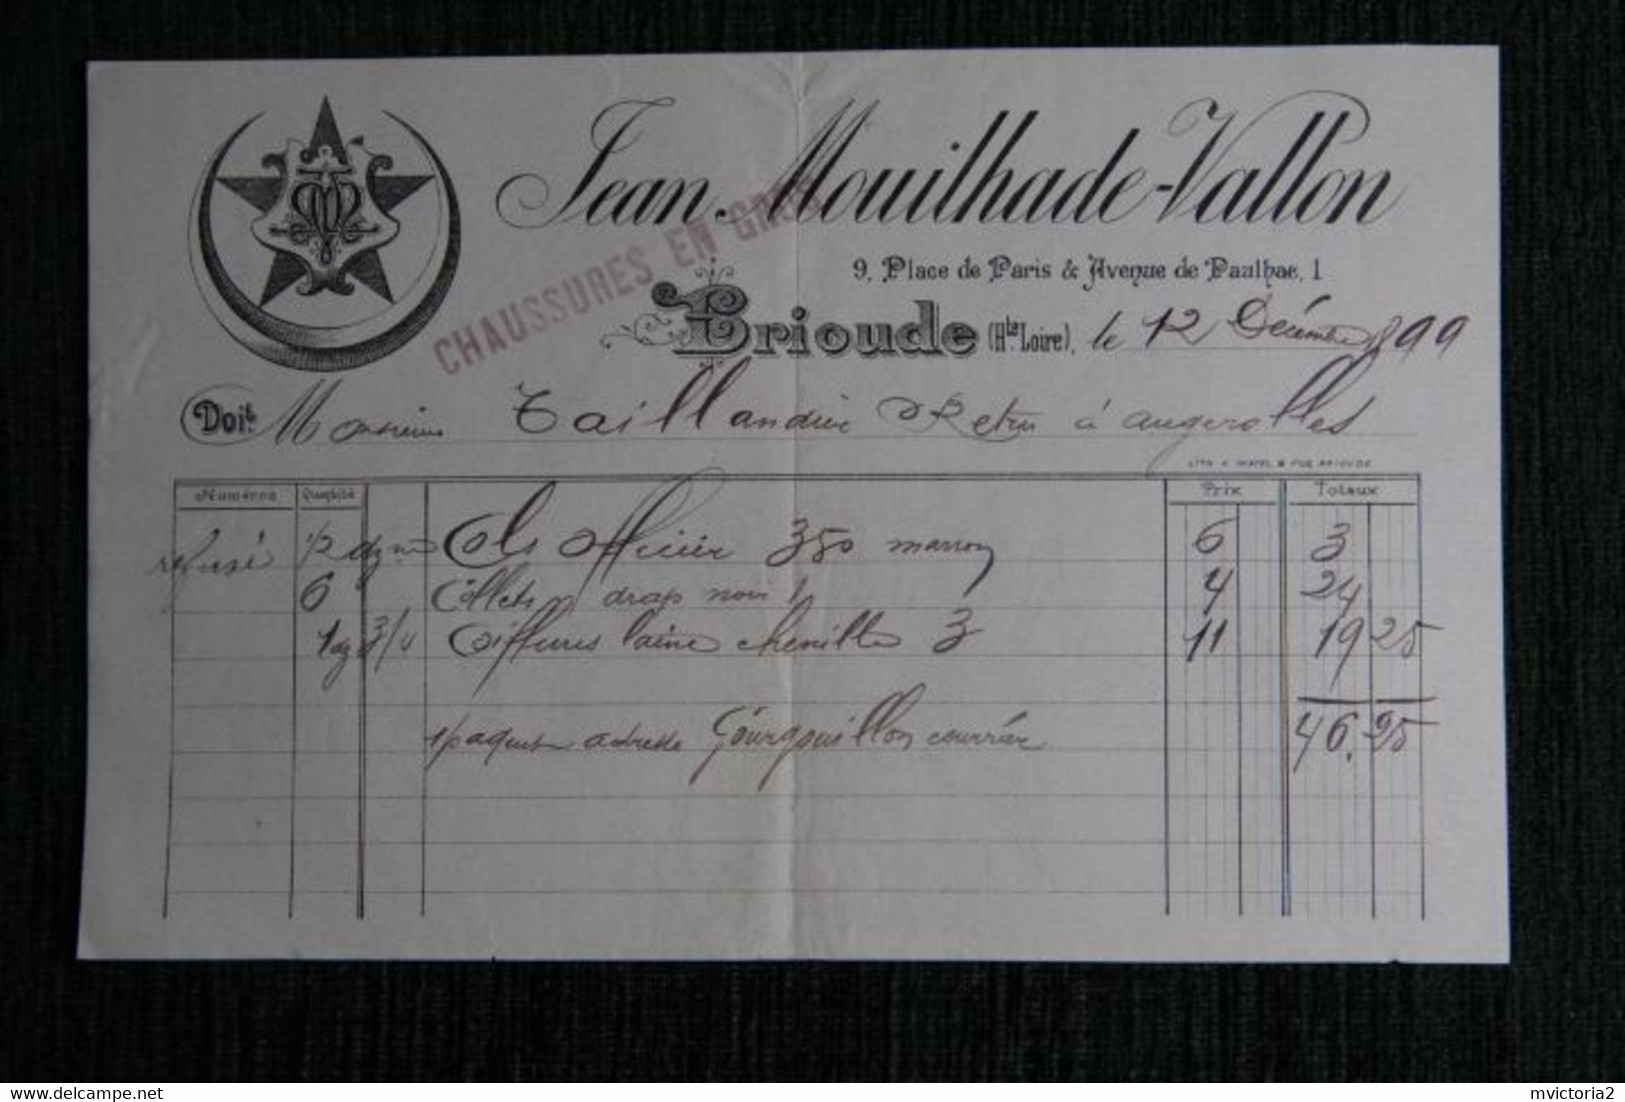 Jean Mouilhade-Vallon
CHAUSSURES EN GROS
9, Place de Paris & Avenue de Paulhac, 1
Brioude (Hte Loire), le 12 Décembre 1899
Doit Monsieur Taillandier à augerolles
Numéros Quantité Prix Totaux
refusé 1/2 dzne Cols officier 350 marron 6 3
6 Collets drap noir 1 4 24
1 dz 3/4 Coiffures laine chenille 3 11 19 25
46.25
1 paquet adresse Gourgouillon courrier
mvictoria2